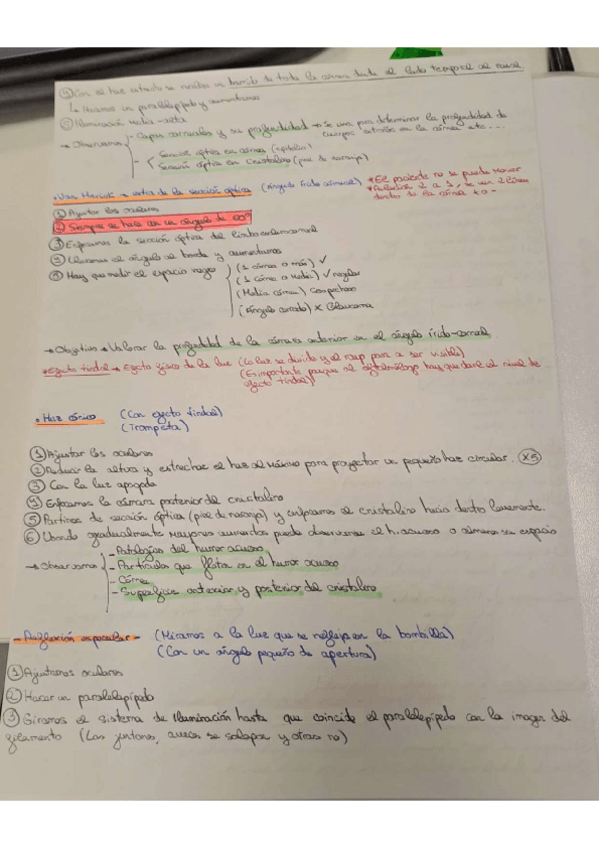 ④ Con el haz estrecho se realiza un barrido de toda la cámara desde el lado temporal al nasal
la llevamos un paralelepípedo y aumentamos
⑤ Iluminación media-alta
→ Observamos
- Capas corneales y su profundidad → Se usa para determinar la profundidad de
cuerpos extraños en la córnea etc....
- Sección óptica en córnea (epitelio)
- Sección óptica en cristalino (piel de naranja)
• Van Herick → extra de la sección óptica (ángulo irido corneal)
* El paciente no se puede mover
① Ajustar los oculares
② Siempre se hace con un ángulo de 60º
③ Enfocamos la sección óptica del limbo esclerocorneal
④ Llevamos el ángulo al borde y aumentamos
⑤ Hay que medir el espacio negro
(1 córnea o más) ✓
(1 córnea o Media) ✓ regular
(Media córnea) Sospechoso
(Ángulo cerrado) X Glaucoma
→ Objetivo → Valorar la profundidad de la cámara anterior en el ángulo írido-corneal
* Efecto tindal → Efecto físico de la luz (La luz se divide y el rayo pasa a ser visible)
(Es importante porque al oftalmólogo hay que darle el nivel de
efecto tindal)
• Haz cónico (Con efecto tindal)
(Trompeta)
① Ajustar los oculares
② Reducir la altura y estrechar el haz al máximo para proyectar un pequeño haz circular. (X5)
③ Con la luz apagada
④ Enfocamos la cámara posterior del cristalino
⑤ Partimos de sección óptica (piel de naranja) y enfocamos el cristalino hacia dentro levemente.
⑥ Usando gradualmente mayores aumentos puede observarse el h. acuoso o cámara sin espacio
→ Observamos
- Patologías del humor acuoso
- Partículas que flota en el humor acuoso
- Córnea
- Superficie anterior y posterior del cristalino
- Reflexión especular - (Miramos a la luz que se refleja en la bombilla)
(Con un ángulo pequeño de apertura)
① Ajustamos oculares
② Hacer un paralelepípedo
③ Giramos el sistema de iluminación hasta que coincide el paralelepípedo con la imagen del
filamento (Los juntamos, a veces se solapan y otras no)